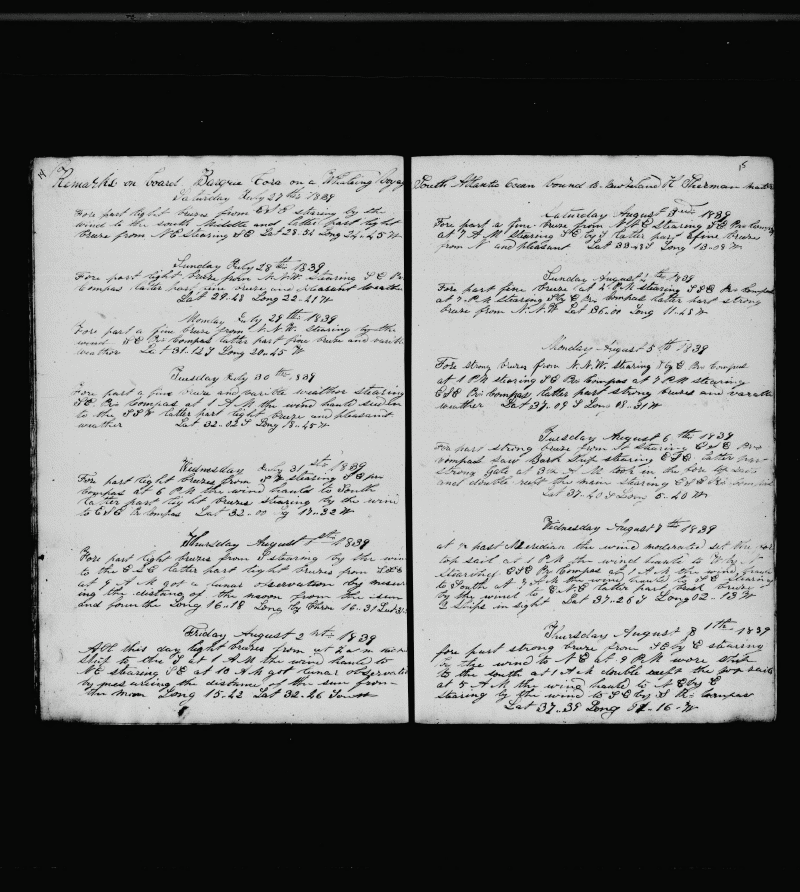 Remarks on board Barque Cora on a Whaling Voyag
Saturday July 27th 1839
Fore part light bruzes from E stearing by the
wind to the south Middle and latter part light
bruze from NE Stearing SE Lat 28.34 Long 24.45 W
Sunday July 28th 1839
Fore part light bruze from N.N.W. Stearing S E Pr
Compas latter part fine bruze and pleasant weathe
Lat 29.28 Long 22-21 W
Monday July 29th 1839
Fore part a fine bruze from N.N.W. Stearing by the
wind SE Pr Compas latter part fine bruze and varible
weather Lat 31.12 S Long 20.45 W
Tuesday July 30th 1839
Fore part a fine bruze and varible weather stearing
SE Pr Compas at 1 A M the wind hauld
to the SSW latter part light bruze and pleasant
weather Lat 32-02 S Long 18-45 W
Wednesday July 31st 1839
Fore part light bruzes from SW stearing SE pr
Compas at 6 P M the wind hauld to South
latter part light bruzes Stearing by the wind
to E Pr Compas Lat 32-00 Long 17-32 W
Thursday August 1st 1839
Fore part light bruzes from S stearing by the win
to the E latter part light bruzes from
at 9 A M got a lunar observation by measur
ing the distang of the moon from the sun
and found the Long 16-18 Long by Chron 16-31 Lat
Friday August 2 nd 1839
All this day light bruzes from at
ship to the S at 1 A M the wind hauld to
NE stearing SE at 10 A M got lunar observatio
by mesureing the distance of the sun from
the moon Long 15-42 Lat 32-46
5
South Atlantic Ocean bound to New Zeland H Sherman master
Saturday August 3rd 1839
Fore part a fine bruze from N stearing SE Pr Compas
at 7 A M Stearing SE by S latter part a fine bruze
from N and pleasant Lat 33-43 S Long 13-08 W
Sunday August 4th 1839
Fore part fine bruze at 4 P M stearing SSE Pr Compas
at 7 P M stearing S by E Pr Compas latter part strong
bruze from N.N.W Lat 36.00 Long 11-45 W
Monday August 5th 1839
Fore strong bruzes from N.N.W. stearing Pr Compas
at 1 P M stearing SE Pr Compas at 7 P M stearing
ESE Pr Compas latter part strong bruzes and varable
weather Lat 37.09 S Long 08-31 W
Tuesday August 6th 1839
Fore part strong bruze from stearing Pr
compas saw Bark Ship stearing ESE latter part
strong Gale at 3 A M took in the fore top sail
and double reeft the main stearing ESE Pr Compas
Lat 37-40 S Long 5-40 W
Wednesday August 7th 1839
at past Meridian the wind moderated set the fore
top sail at 1 P M the wind hauld to
Steard ESE Pr Compas at 1 A M the wind hauld
to South at A M the wind hauld to SE stearing
by the wind to E.N.E latter part bruze
2 Ships in sight Lat 37-26 S Long 02-13 W
Thursday August 8 11th 1839
fore part strong bruze from SE by E stearing
by the wind to NE at 9 P M wore ship
to the south at 1 A M double reeft the top sails
at 5 A M the wind hauld to NE by E
stearing by the wind to SE by S Pr Compas
Lat 37-39 Long 01-16 W